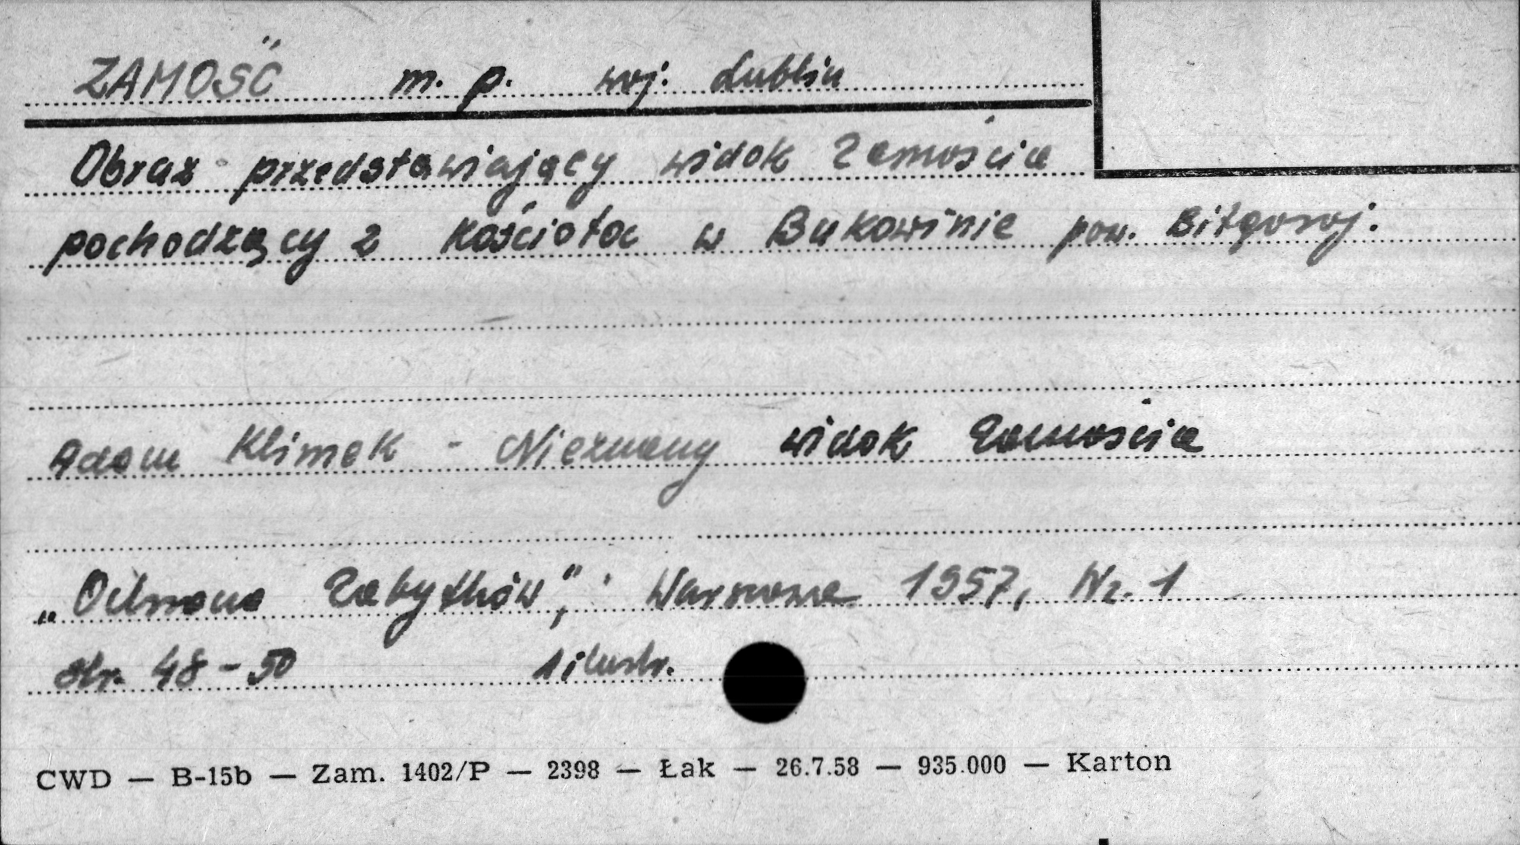 ZAMOŚĆ m. p. woj. Lublin
Obraz przedstawiający widok Zamościa
pochodzący z kościoła w Bukowinie pow. Biłgoraj.
Adam Klimek - Nieznany widok Zamościa
„Ochrona Zabytków”, Warszawa 1957, Nr. 1
str. 48-50 1 ilustr.
CWD — B-15b — Zam. 1402/P — 2398 — Łak — 26.7.58 — 935.000 — Karton